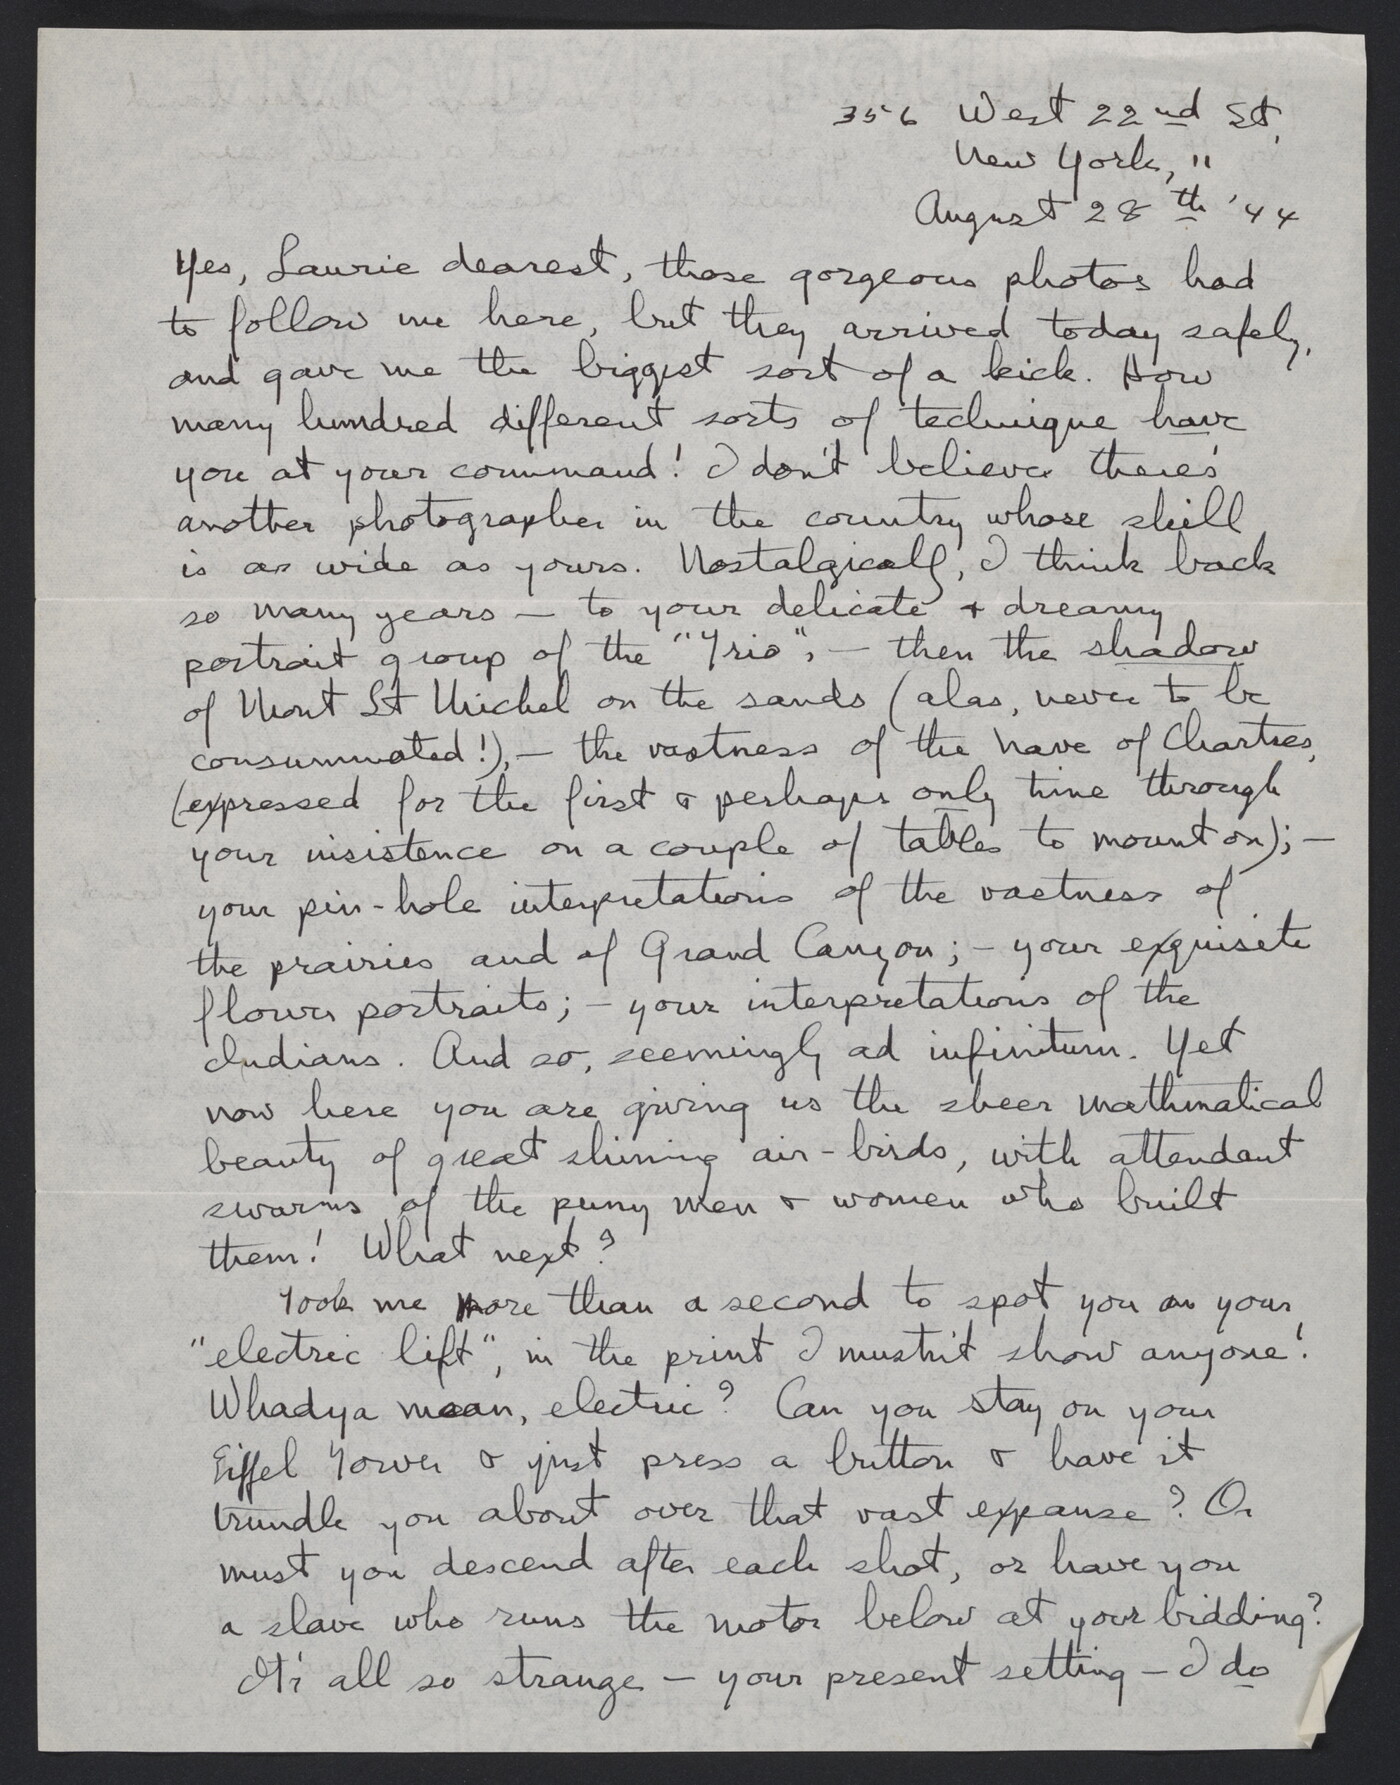 356 West 22nd St,
New York, 11
August 28th '44
Yes, Laurie dearest, those gorgeous photos had
to follow me here, but they arrived today safely,
and gave me the biggest sort of a kick. How
many hundred different sorts of technique have
you at your command! I don't believe there's
another photographer in the country whose skill
is as wide as yours. Nostalgically, I think back
so many years — to your delicate & dreamy
portrait group of the "Trio", — then the shadow
of Mont St Michel on the sands (alas, never to be
consummated!), — the vastness of the nave of Chartres,
(expressed for the first & perhaps only time through
your insistence on a couple of tables to mount on); —
your pin-hole interpretations of the vastness of
the prairies and of Grand Canyon; — your exquisite
flower portraits; — your interpretations of the
Indians. And so, seemingly ad infinitum. Yet
now here you are giving us the sheer mathmatical
beauty of great shining air-birds, with attendant
swarms of the puny men & women who built
them! What next?
Took me more than a second to spot you on your
"electric lift", in the print I mustn't show anyone!
Whadya mean, electric? Can you stay on your
Eiffel Tower & just press a button & have it
trundle you about over that vast expanse? Or
must you descend after each shot, or have you
a slave who runs the motor below at your bidding?
It's all so strange — your present setting — I do